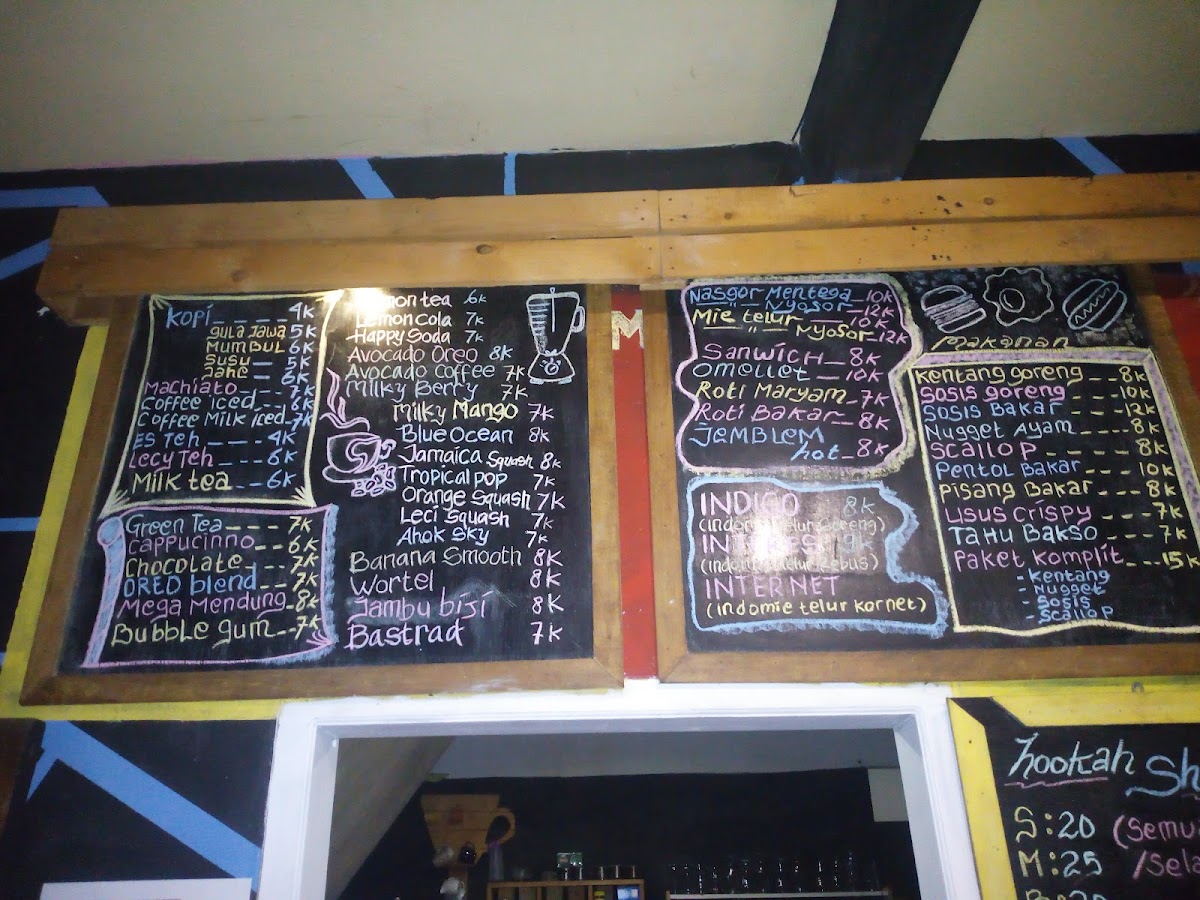 Kopi ---- 4K
Gula Jawa 5K
Mumbul 6K
Susu - 5K
Jahe - 6K
Machiato --- 7K
Coffee Iced -- 6K
Coffee Milk Iced -7K
Es Teh --- 4K
Lecy Teh --- 6K
Milk tea --- 6K
Green Tea ---- 7K
Cappucinno -- 6K
Chocolate --- 7K
OREO blend -- 7K
Mega Mendung -8K
Bubble gum -- 7K
Lemon tea 6K
Lemon Cola 7K
Happy Soda 7K
Avocado Oreo 8K
Avocado Coffee 7K
Milky Berry 7K
Milky Mango 7K
Blue Ocean 8K
Jamaica Squash 8K
Tropical pop 7K
Orange Squash 7K
Leci Squash 7K
Ahok Sky 7K
Banana Smooth 8K
Wortel 8K
Jambu biji 8K
Bastrad 7K
M
Nasgor Mentega _10K
" " Nyosor _12K
Mie telur __ 10K
" Nyosor _12K
Sanwich __ 8K
Omellet __ 10K
Roti Maryam _7K
Roti Bakar __ 8K
Jemblem
hot _ 8K
INDIGO 8K
(indomie telur goreng)
INTERNET
(indomie telur kornet)
Makanan
Kentang goreng -- 8K
Sosis goreng --- 10K
Sosis Bakar ---- 12K
Nugget Ayam ---- 8K
Scallop ---- 8K
Pentol Bakar --- 10K
Pisang Bakar --- 8K
Usus Crispy ---- 7K
Tahu Bakso --- 7K
Paket Komplit --- 15K
- Kentang
- Nugget
- Sosis
- Scallop
hookah Sh
S : 20 (Semu
M : 25 /Sela